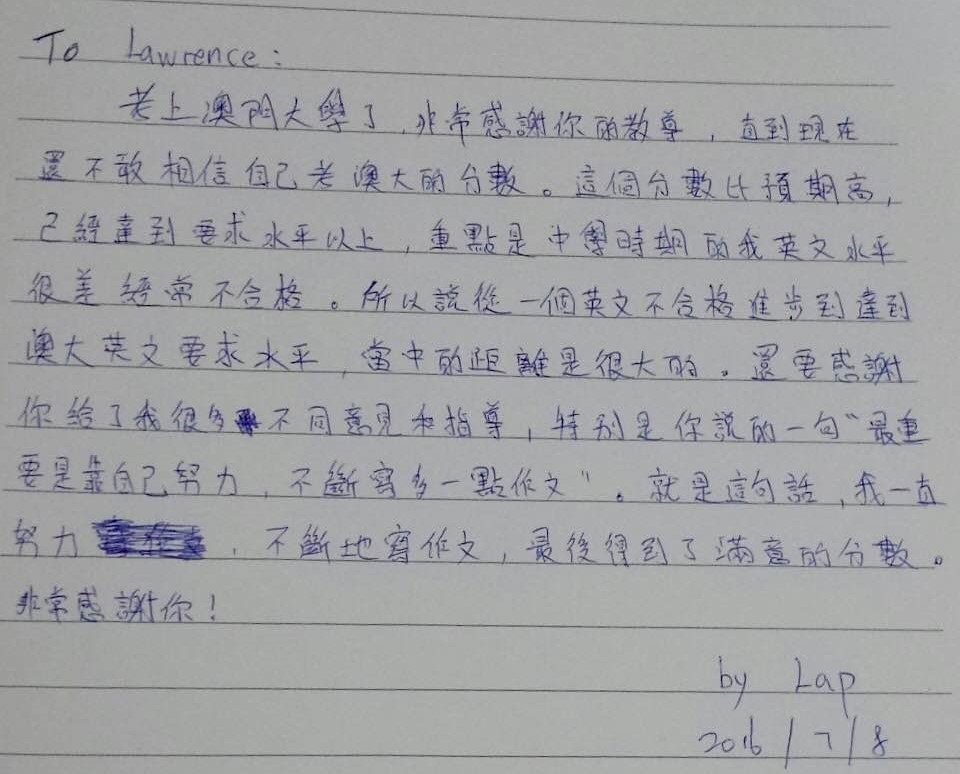 To Lawrence:
考上澳門大學了,非常感謝你的教導,直到現在
還不敢相信自己考澳大的分數。這個分數比預期高,
已經達到要求水平以上,重點是中學時期的我英文水平
很差經常不合格。所以說從一個英文不合格進步到達到
澳大英文要求水平,當中的距離是很大的。還要感謝
你給了我很多不同意見和指導,特別是你說的一句“最重
要是靠自己努力,不斷寫多一點作文”。就是這句話,我一直
努力,不斷地寫作文,最後得到了滿意的分數。
非常感謝你!
by Lap
2016/7/8